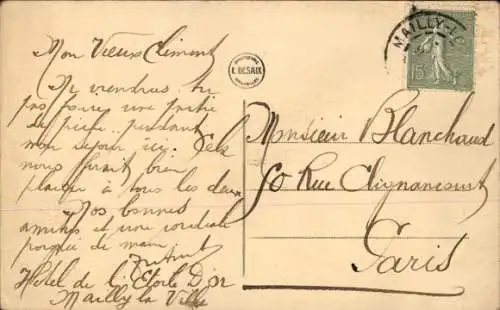 Mon Vieux Clément
Ne viendras tu
pas faire une partie
de pêche pendant
mon séjour ici. Cela
nous ferait bien
plaisir à tous les deux
Nos bonnes
amitiés et une cordiale
poignée de main
Hôtel de l'Etoile D'or
Mailly la Ville
E. DESAIX
MAILLY-LA
15c
Monsieur Blanchaud
50 Rue Clignancourt
Paris